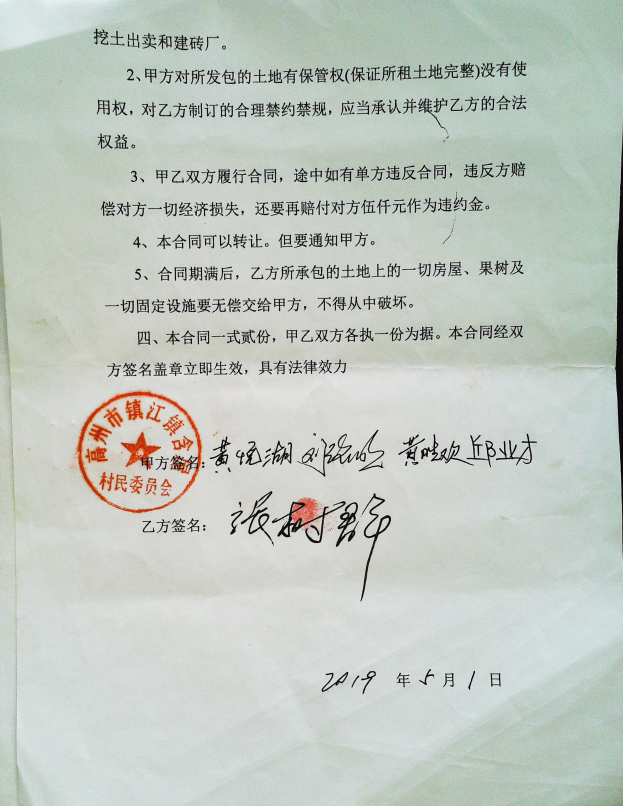 挖土出卖和建砖厂。
2、甲方对所发包的土地有保管权(保证所租土地完整)没有使
用权，对乙方制订的合理禁约禁规，应当承认并维护乙方的合法
权益。
3、甲乙双方履行合同，途中如有单方违反合同，违反方赔
偿对方一切经济损失，还要再赔付对方伍仟元作为违约金。
4、本合同可以转让。但要通知甲方。
5、合同期满后，乙方所承包的土地上的一切房屋、果树及
一切固定设施要无偿交给甲方，不得从中破坏。
四、本合同一式贰份，甲乙双方各执一份为据。本合同经双
方签名盖章立即生效，具有法律效力
高州市镇江镇
村民委员会
甲方签名：黄悦湖 黄晓欢 邱业才
乙方签名：张树
2019 年 5 月 1 日